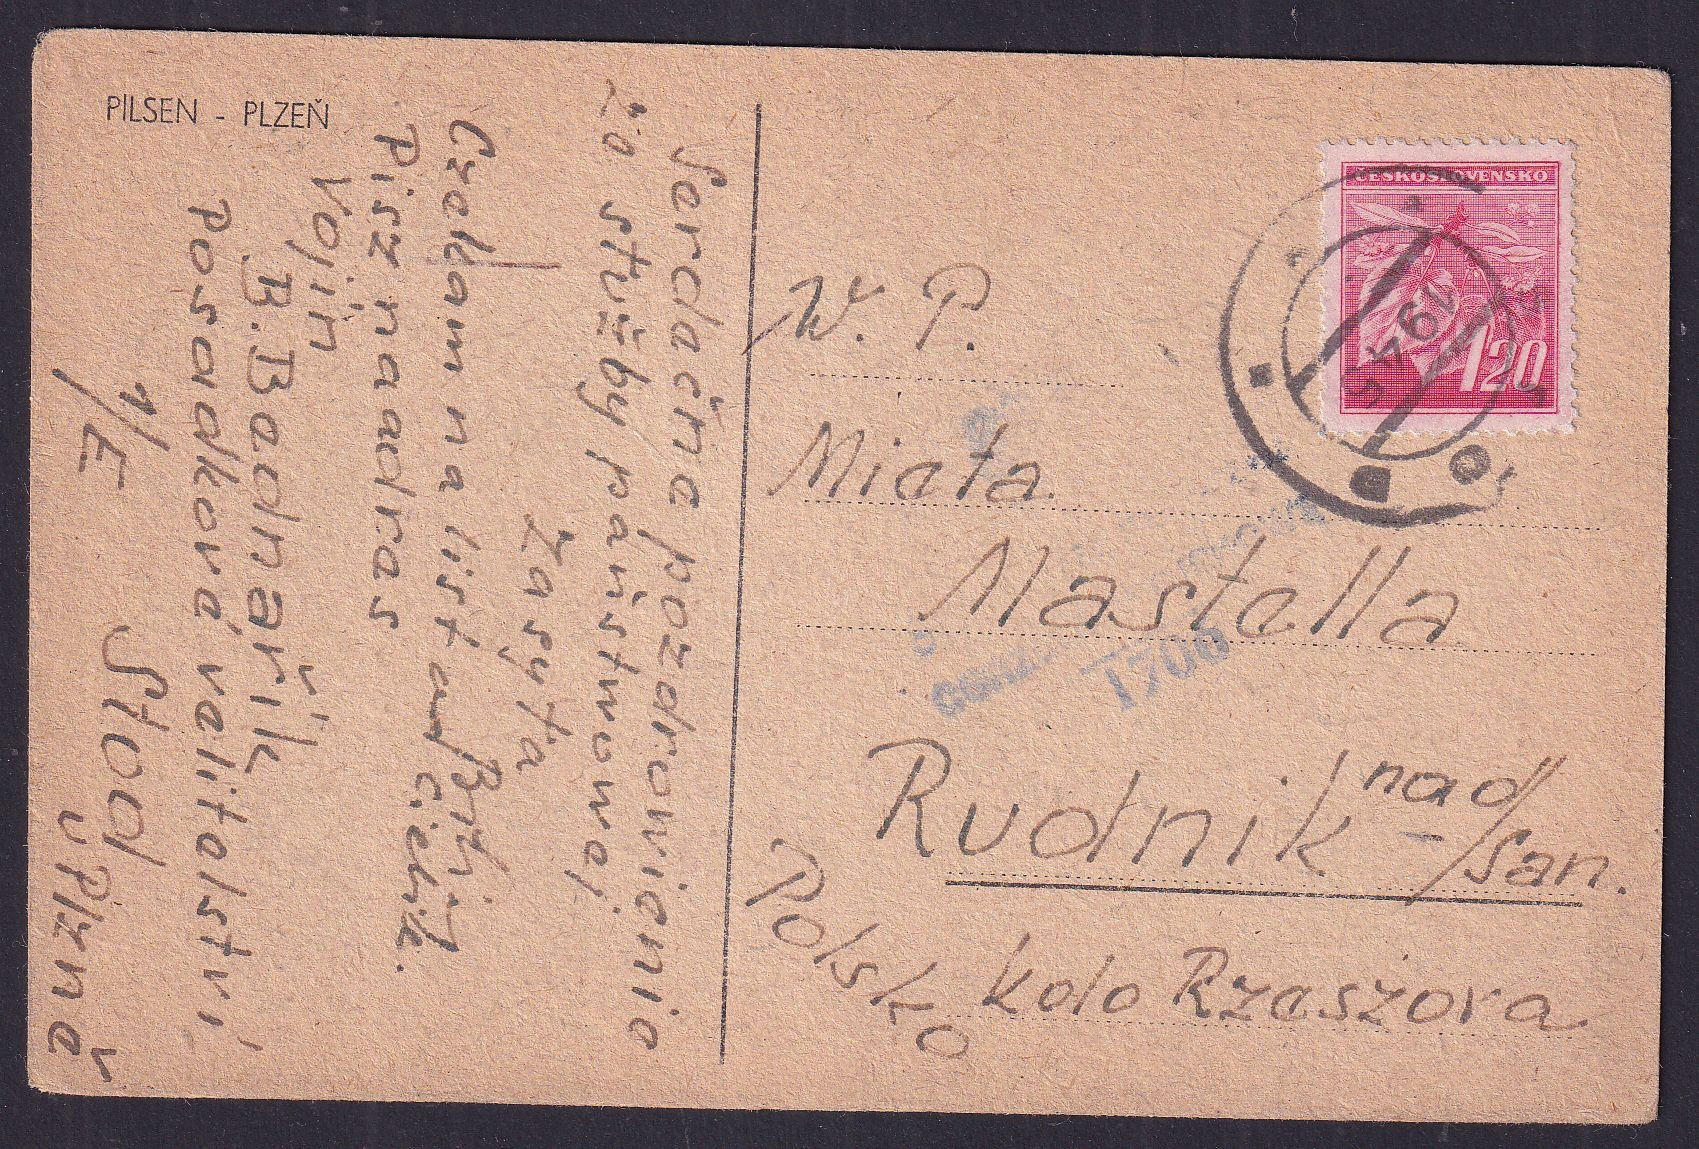 PILSEN - PLZEŇ
Serdačne pozdrowienie
ze stužby państwowej
Zasyła
Czekam na list od
Pisz na adres
Vojín
B. Bednařík
Posadkové velitelství
1/E
Stod
u Plzně
ČESKOSLOVENSKO
1.20
W. P.
Mieta
Mastella
Rudnik nad/San.
kolo Rzeszova
Polsko
1706